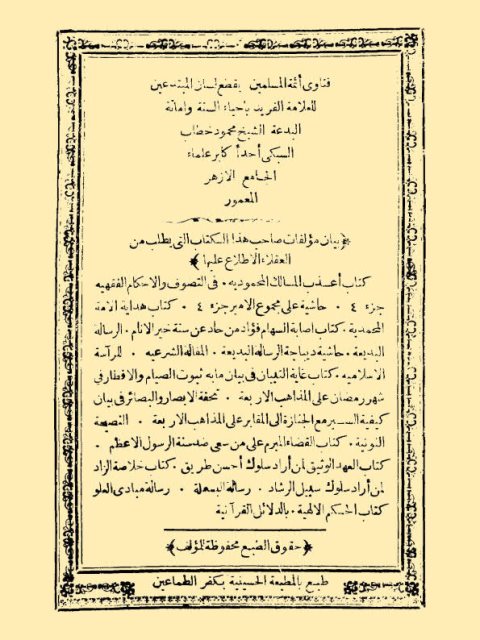 فتاوى أئمة المسلمين بقطع لسان المبتدعين
للعلامة الفريد بأحياء السنة واماتة
البدعة الشيخ محمود خطاب
السبكى أحد أكابر علماء
الجامع الازهر
المعمور
﴿بيان مؤلفات صاحب هذا الكتاب التى يطلب من
العقلاء الاطلاع عليها﴾
كتاب أعذب المسالك المحموديه. فى التصوف والاحكام الفقهيه
جزء ٤ . حاشية على مجموع الامير جزء ٤ . كتاب هداية الامة
المحمدية. كتاب اصابة السهام فؤاد من حاد عن سنة خير الانام. الرسالة
البديعة. حاشية ديباجة الرسالة البديعة . المقالة الشرعيه . للرآسة
الاسلاميه. كتاب غاية التبيان فى بيان ما به ثبوت الصيام والافطار فى
شهر رمضان على المذاهب الاربعة . تحفة الابصار والبصائر فى بيان
كيفية السير مع الجنازة الى المقابر على المذاهب الاربعة . النصيحة
النونية. كتاب القضاء المبرم على من سعى ضد سنة الرسول الاعظم .
كتاب العهد الوثيق لمن أراد سلوك أحسن طريق. كتاب خلاصة الزاد
لمن أراد سلوك سبيل الرشاد . رسالة البسملة . رسالة مبادى العلو
كتاب الحكم الالهية. بالدلائل القرآنية
﴿حقوق الطبع محفوظة للمؤلف﴾
طبع بالمطبعة الحسينية بكفر الطماعين